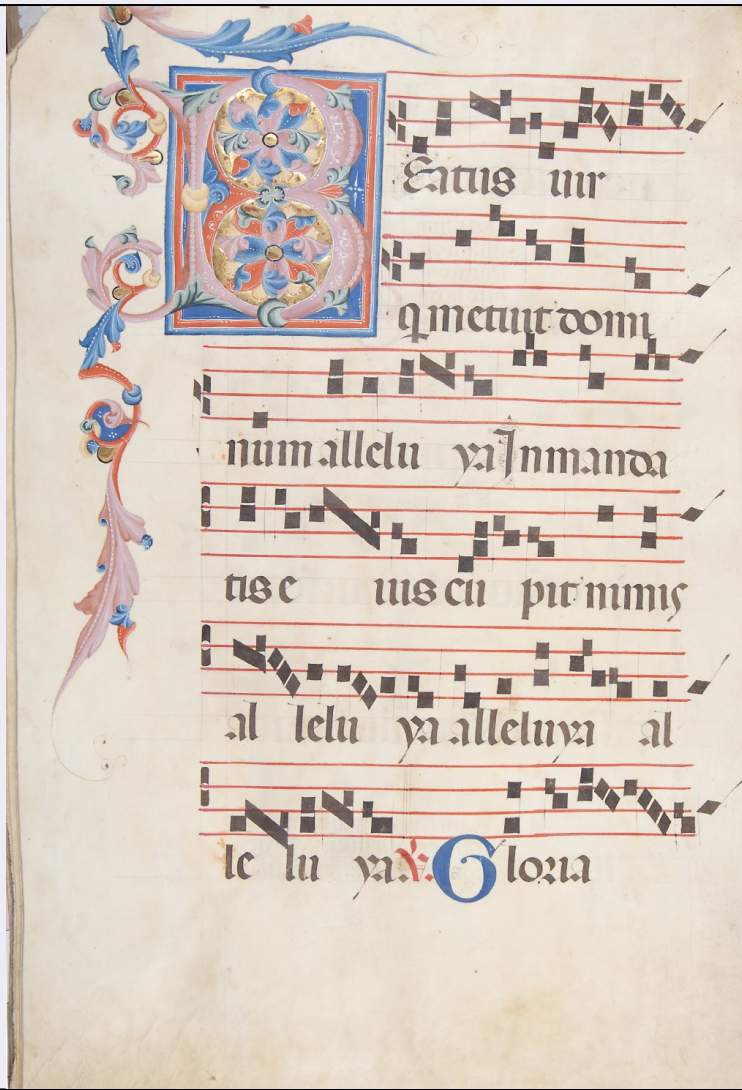 BEatus uir
q metuit domi
num allelu ya In manda
tis e ius cu pit nimis
al lelu ya alleluya al
le lu ya. V. Gloria